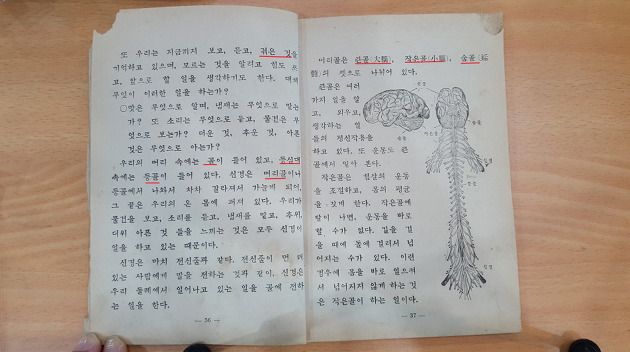 또 우리는 지금까지 보고, 듣고, 겪은 것을
기억하고 있으며, 모르는 것을 알려고 힘도 쓰
고, 앞으로 할 일을 생각하기도 한다. 대체
무엇이 이러한 일을 하는가?
○맛은 무엇으로 알며, 냄새는 무엇으로 맡는
가? 또 소리는 무엇으로 듣고, 물건은 무
엇으로 보는가? 더운 것, 추운 것, 아픈
것은 무엇으로 아는가?
우리의 머리 속에는 골이 들어 있고, 등심대
속에는 등골이 들어 있다. 신경은 머리골이나
등골에서 나와서 차차 갈라져서 가늘게 되어,
그 끝은 우리의 온 몸에 퍼져 있다. 우리가
물건을 보고, 소리를 듣고, 냄새를 맡고, 추위,
더위 아픈 것 들을 느끼는 것은 모두 신경이
일을 하고 있는 때문이다.
신경은 마치 전신줄과 같다. 전신줄이 먼 데
있는 사람에게 말을 전하는 것과 같이, 신경은
우리 둘레에서 일어나고 있는 일을 골에 전하
는 일을 한다.
— 36 —
머리골은 큰골(大腦), 작은골(小腦), 숨골(延
髓)의 셋으로 나뉘어 있다.
큰골은 여러
가지 일을 알
고, 외우고,
생각하는 일
들의 정신작용을
하고 있다. 또 운동도 큰
골에서 맡아 본다.
작은골은 힘살의 운동
을 조절하고, 몸의 평균
을 잡게 한다. 작은골에
탈이 나면, 운동을 바로
할 수가 없다. 길을 걸
을 때에 돌에 걸려서 넘
어지는 수가 있다. 이런
경우에 몸을 바로 일으켜
서 넘어지지 않게 하는 것
은 작은골이 하는 일이다.
큰골
작은골
숨골
등골
신경
— 37 —